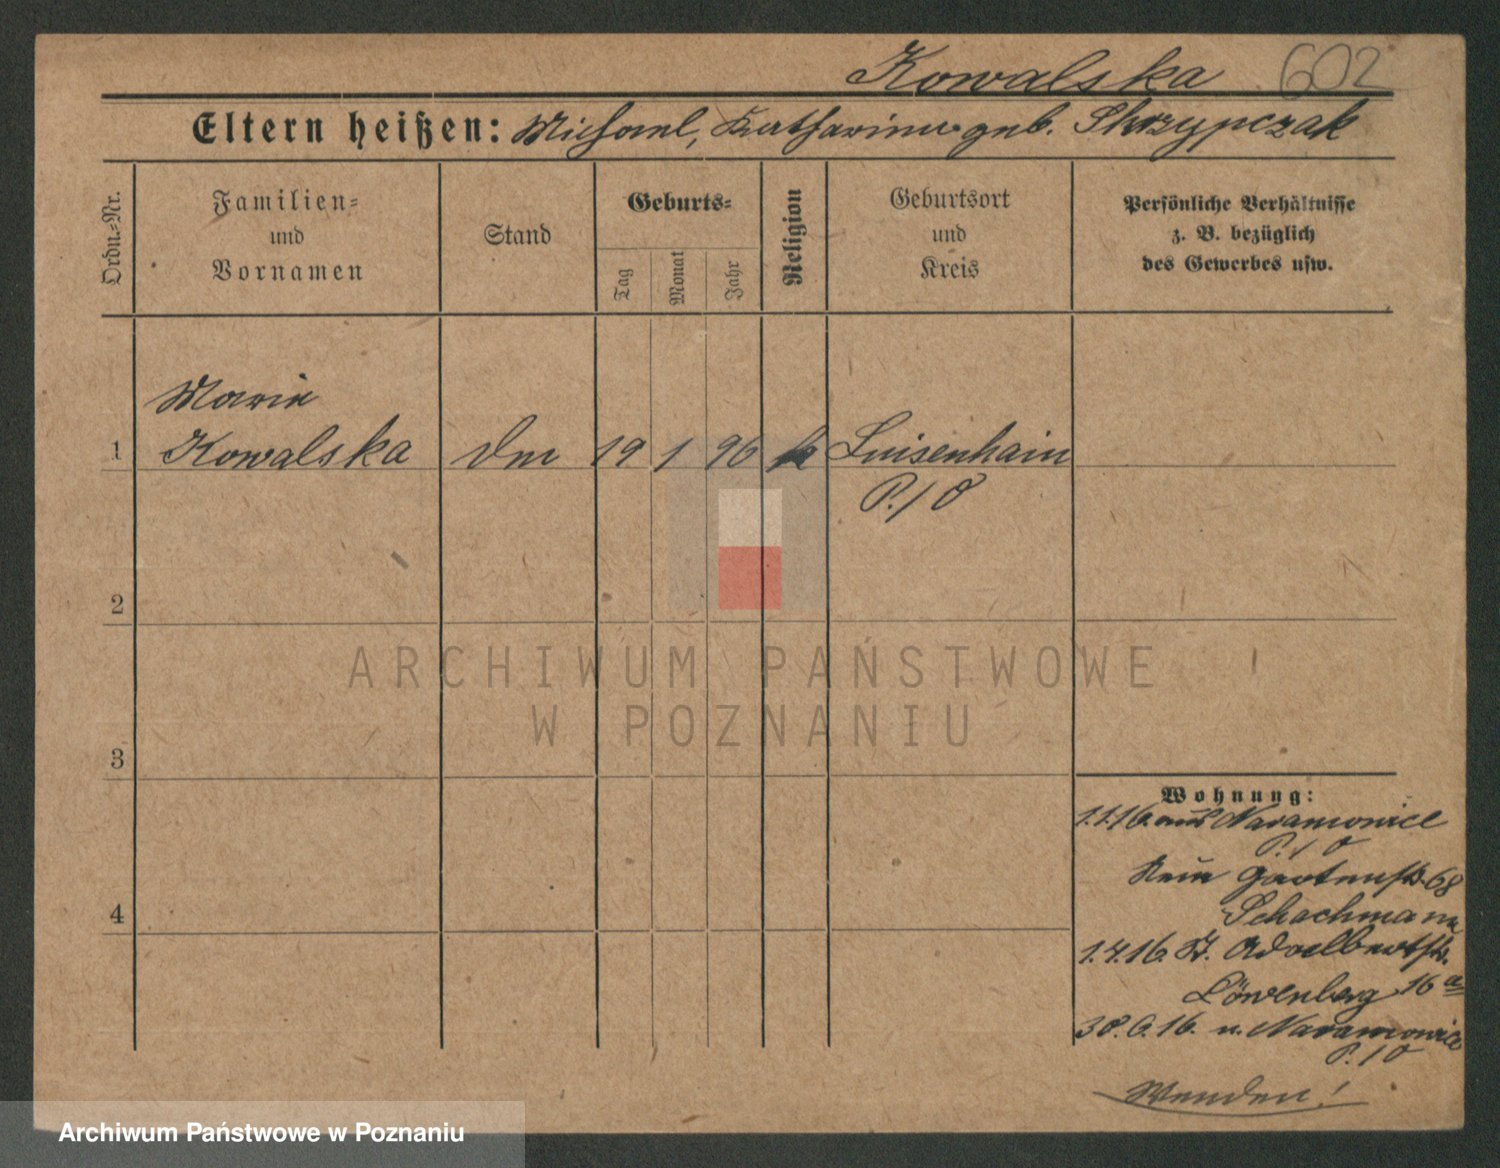 Kowalska 602
Eltern heißen: Michael, Katharina geb. Skrzypczak
Ordn.-Nr.
Familien-
und
Vornamen
Stand
Geburts-
Tag
Monat
Jahr
Religion
Geburtsort
und
Kreis
Persönliche Verhältnisse
z. B. bezüglich
des Gewerbes usw.
Marie
1 Kowalska 19 1 96 k Luisenhain
P. / O
2
3
4
Wohnung:
1.1.16. aus Naramowice
P. / O
Gartenstr. 68
Schachmann
1.4.16. St. Adalbertstr.
Löwenberg 16a
30.6.16. n. Naramowice
P. / O
Wenden!
ARCHIWUM PAŃSTWOWE
W POZNANIU
Archiwum Państwowe w Poznaniu